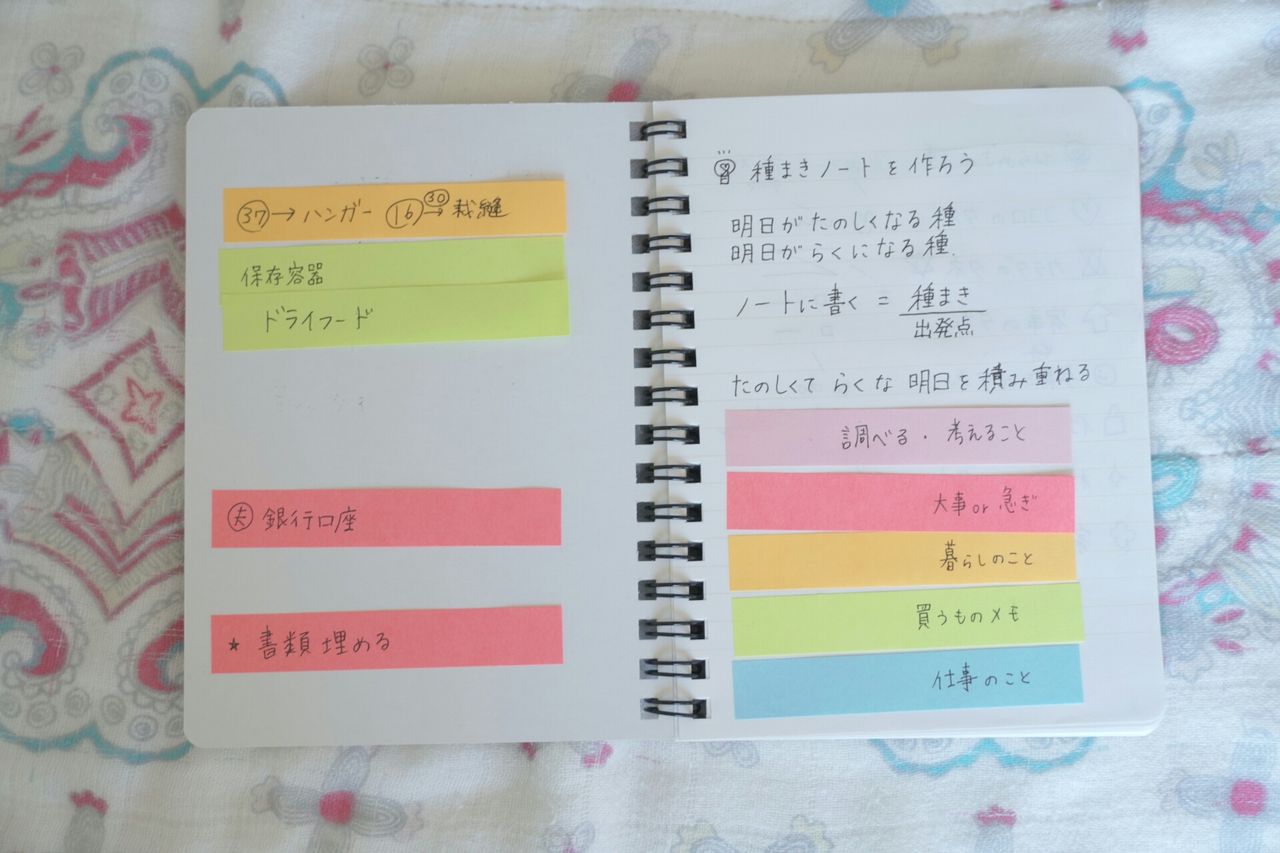 ㊲→ハンガー ⑯→㉚ 裁縫
保存容器
ドライフード
㊛銀行口座
★ 書類埋める
種まきノートを作ろう
明日がたのしくなる種
明日がらくになる種.
ノートに書く = 種まき
出発点
たのしくて らくな 明日を積み重ねる
調べる・考えること
大事or急ぎ
暮らしのこと
買うものメモ
仕事のこと